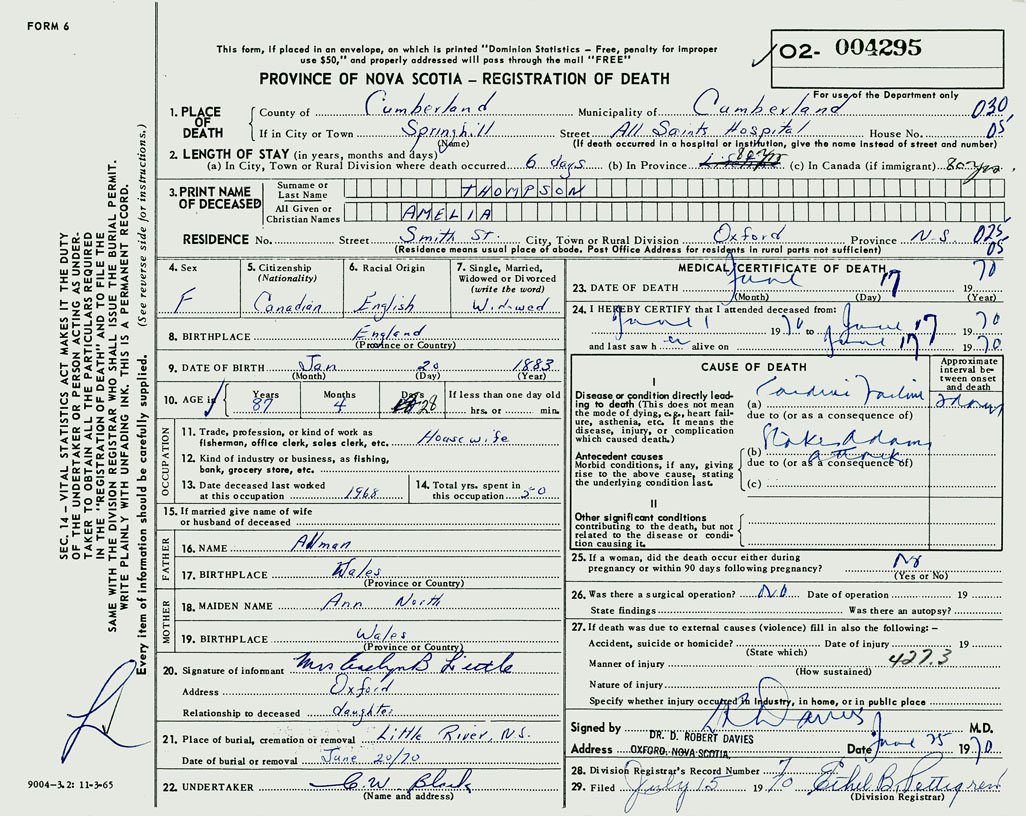 FORM 6
This form, if placed in an envelope, on which is printed "Dominion Statistics – Free, penalty for improper
use $50," and properly addressed will pass through the mail "FREE"
O2- 004295
PROVINCE OF NOVA SCOTIA – REGISTRATION OF DEATH
For use of the Department only
1. PLACE OF DEATH
County of Cumberland Municipality of Cumberland 030
If in City or Town Springhill Street All Saints Hospital House No. 05
(Name) (If death occurred in a hospital or institution, give the name instead of street and number)
2. LENGTH OF STAY (in years, months and days)
(a) In City, Town or Rural Division where death occurred 6 days (b) In Province 80 yrs (c) In Canada (if immigrant) 80 yrs.
3. PRINT NAME OF DECEASED
Surname or Last Name THOMPSON
All Given or Christian Names AMELIA
RESIDENCE No. Street Smith St. City, Town or Rural Division Oxford Province N.S. 025
(Residence means usual place of abode. Post Office Address for residents in rural parts not sufficient) 05
4. Sex F
5. Citizenship (Nationality) Canadian
6. Racial Origin English
7. Single, Married, Widowed or Divorced (write the word) Widowed
8. BIRTHPLACE England
(Province or Country)
9. DATE OF BIRTH Jan 20 1883
(Month) (Day) (Year)
10. AGE in Years 87 Months 4 Days 28 If less than one day old hrs. or min.
OCCUPATION
11. Trade, profession, or kind of work as
fisherman, office clerk, sales clerk, etc. Housewife
12. Kind of industry or business, as fishing,
bank, grocery store, etc.
13. Date deceased last worked
at this occupation 1968
14. Total yrs. spent in
this occupation 50
15. If married give name of wife
or husband of deceased
FATHER
16. NAME Allman
17. BIRTHPLACE Wales
(Province or Country)
MOTHER
18. MAIDEN NAME Ann North
19. BIRTHPLACE Wales
(Province or Country)
20. Signature of informant Mrs Evelyn B Little
Address Oxford
Relationship to deceased daughter
21. Place of burial, cremation or removal Little River, N.S.
Date of burial or removal June 20/70
22. UNDERTAKER C.W. Black
(Name and address)
MEDICAL CERTIFICATE OF DEATH
23. DATE OF DEATH June 17 19 70
(Month) (Day) (Year)
24. I HEREBY CERTIFY that I attended deceased from:
June 1 19 70 to June 17 19 70
and last saw h er alive on June 17 19 70
CAUSE OF DEATH
Approximate interval between onset and death
I
Disease or condition directly leading
to death (This does not mean
the mode of dying, e.g., heart failure,
asthenia, etc. It means the
disease, injury, or complication
which caused death.)
(a) Cardiac Failure 2 days
due to (or as a consequence of)
Antecedent causes
Morbid conditions, if any, giving
rise to the above cause, stating
the underlying condition last.
(b) Stokes Adams attack
due to (or as a consequence of)
(c)
II
Other significant conditions
contributing to the death, but not
related to the disease or condition
causing it.
25. If a woman, did the death occur either during
pregnancy or within 90 days following pregnancy? No
(Yes or No)
26. Was there a surgical operation? No Date of operation 19
State findings Was there an autopsy?
27. If death was due to external causes (violence) fill in also the following: –
Accident, suicide or homicide? Date of injury 19
(State which)
Manner of injury 427.3
(How sustained)
Nature of injury
Specify whether injury occurred in Industry, in home, or in public place
Signed by D R Davies M.D.
DR. D. ROBERT DAVIES
Address OXFORD, NOVA SCOTIA Date June 25 19 70
28. Division Registrar's Record Number 7
29. Filed July 15 19 70 Ethel B. Pettigrew
(Division Registrar)
SEC. 14 – VITAL STATISTICS ACT MAKES IT THE DUTY
OF THE UNDERTAKER OR PERSON ACTING AS UNDER-
TAKER TO OBTAIN ALL THE PARTICULARS REQUIRED
IN THE "REGISTRATION OF DEATH" AND TO FILE THE
SAME WITH THE DIVISION REGISTRAR WHO SHALL ISSUE THE BURIAL PERMIT.
WRITE PLAINLY WITH UNFADING INK. THIS IS A PERMANENT RECORD.
Every item of information should be carefully supplied. (See reverse side for instructions.)
9004–3.2: 11-3-65